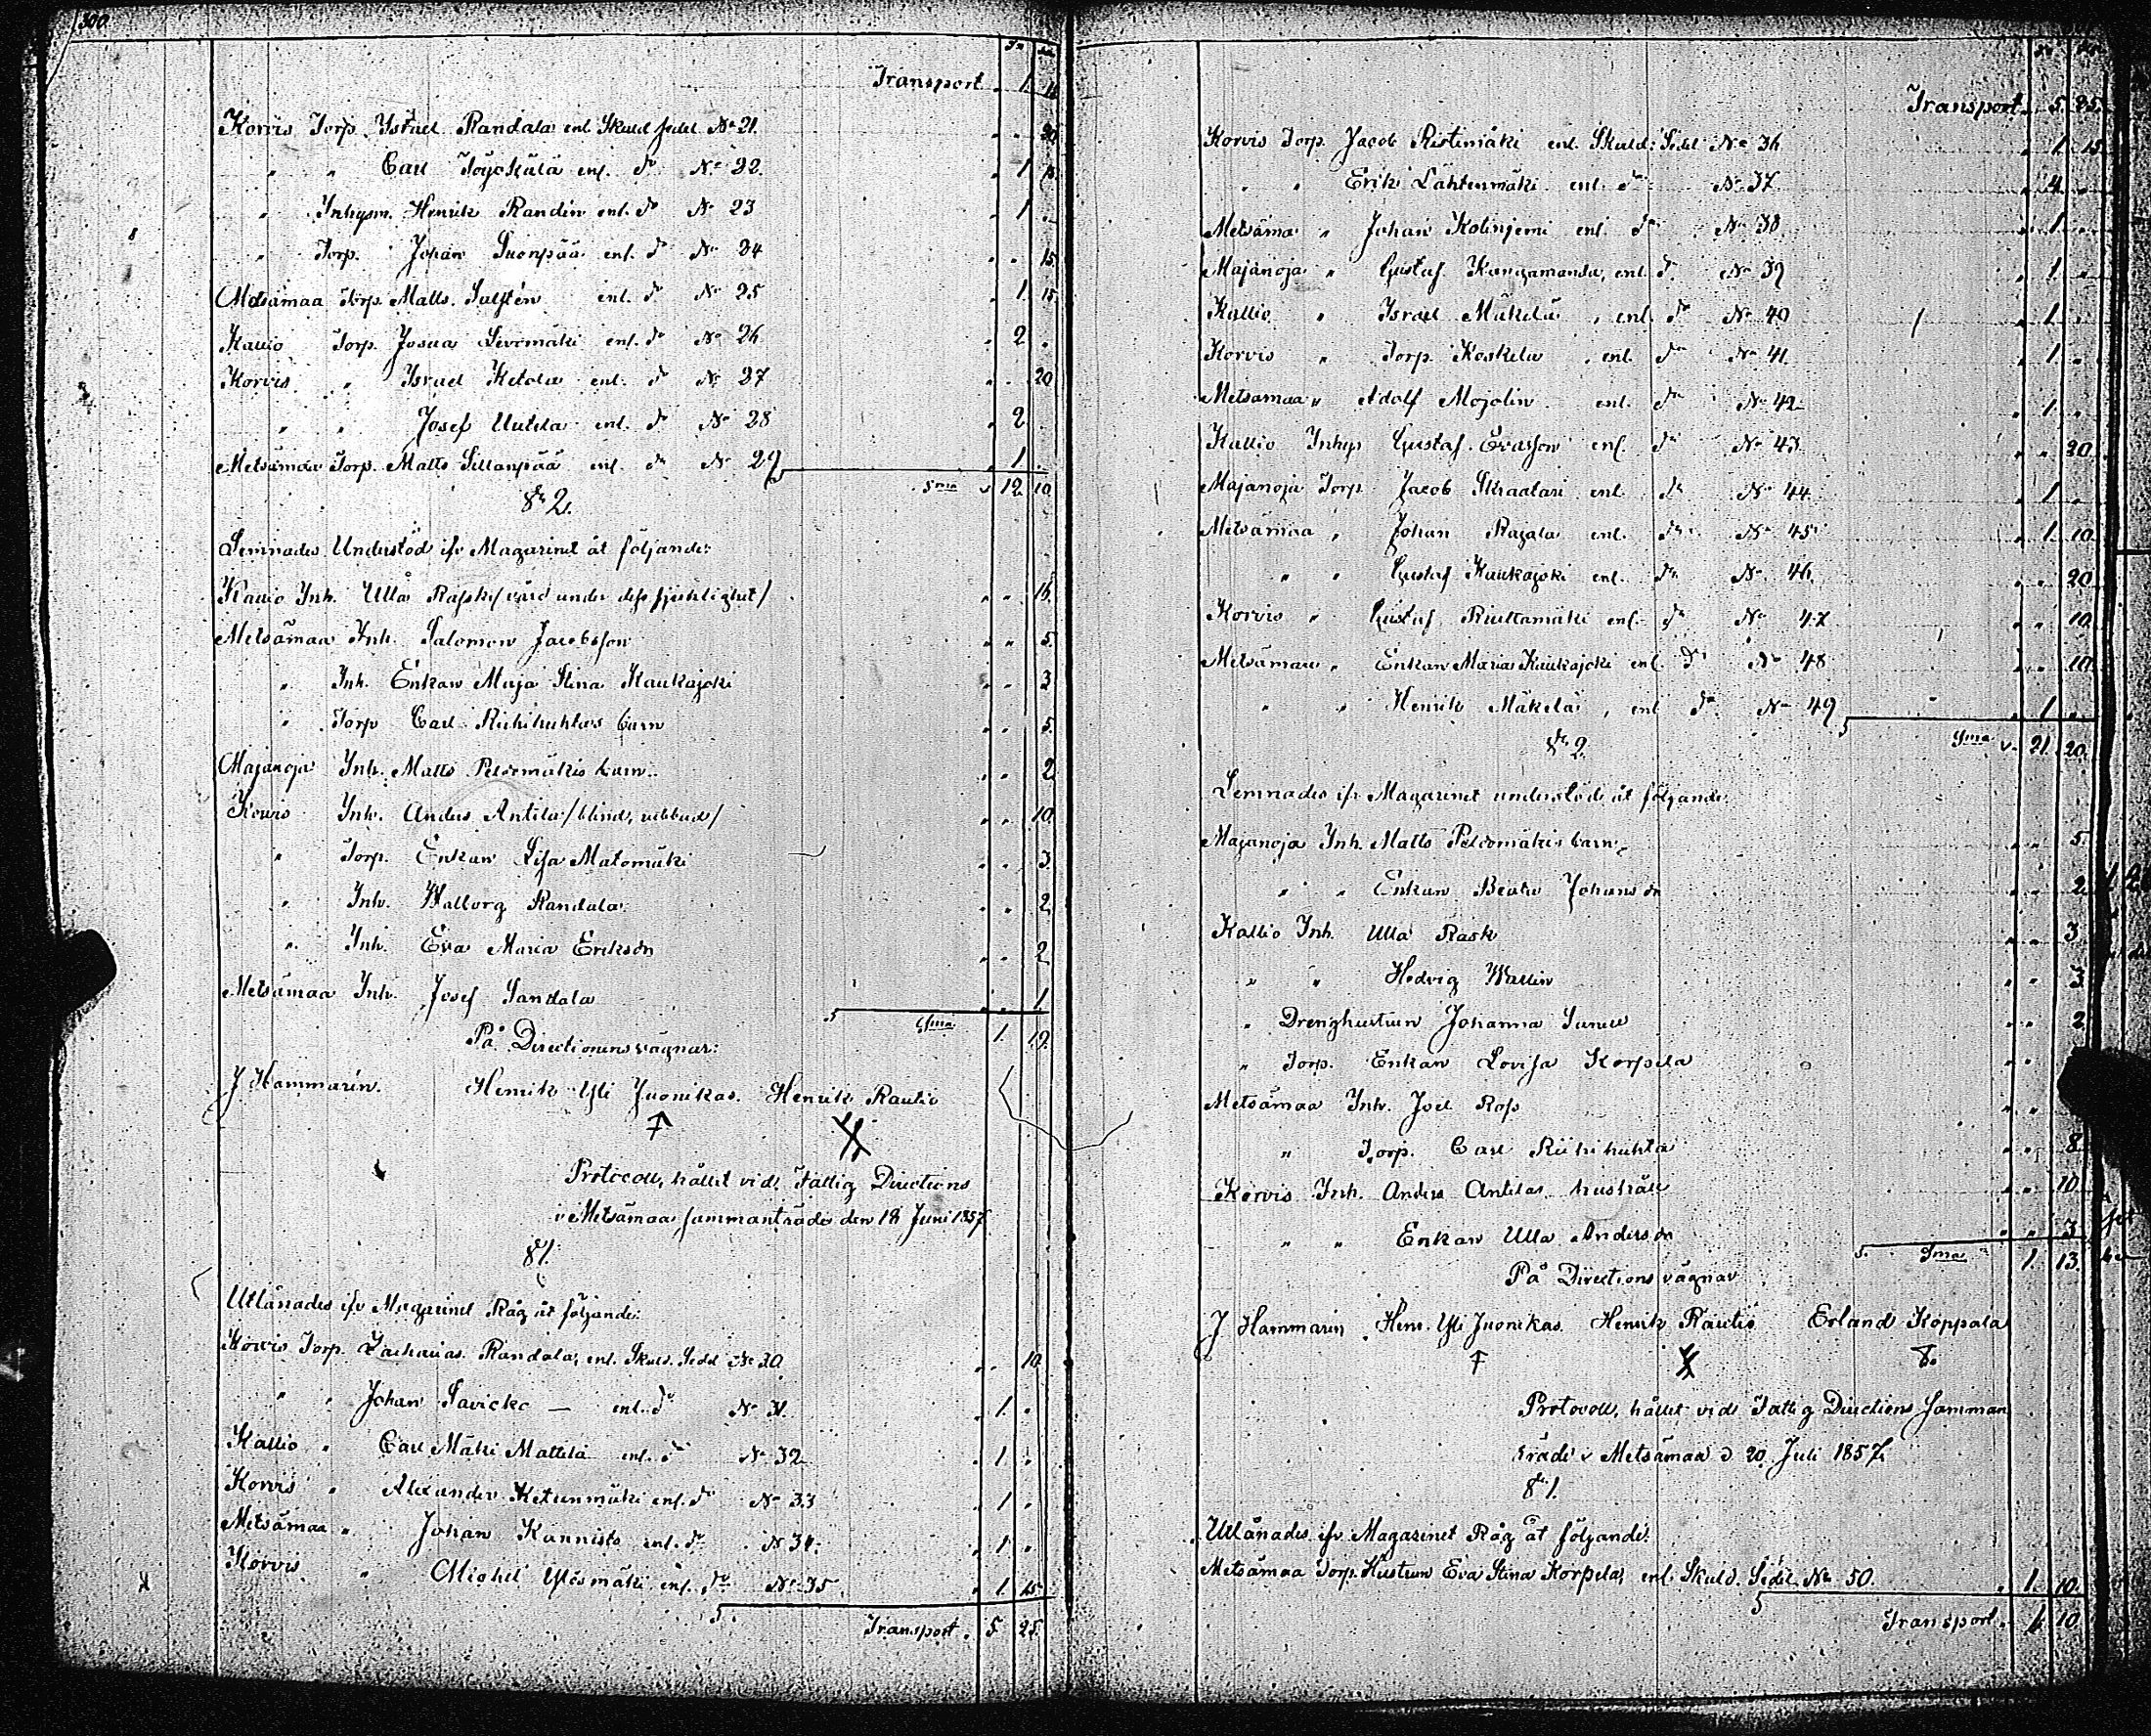 300
Transport 1.
Korvis Torp. Israel Randala enl. Skuld sedel No 21. 20
" " Carl enl. do No 22. 1
" Inhysm. Henrik Randin enl. do No 23 1
" Torp. Johan Suonpää enl. do No 24 15.
Metsämaa Torp. Matts enl. do No 25 1 15
Kallio Torp. Josua enl. do No 26 2
Korvis " Israel Ketola enl. do No 27 20
" " Josef Uutela enl. do No 28 2
Metsämaa Torp. Matts Sillanpää enl. do No 29 1
Sma v 12 10
§ 2.
Lemnades Understöd ifr Magazinet åt följande:
Kallio Inh. Ulla Rask /vård under dess sjuklighet/ 16.
Metsämaa Inh. Salomon Jacobsson 5.
" Inh. Enkan Maja Stina Kaukajoki 3
" Torp Carl Riihihuhtas barn 5.
Majanoja Inh. Matts Peldomäkis barn 2
Korvis Inh. Anders Antila /blind, / 10.
" Torp. Enkan Lisa Matomäki 3.
" Inh. Walborg Randala 2
" Inh. Eva Maria Eriksdr 2
Metsämaa Inh. Josef Sandala 1.
Sma 1. 19.
På Directionens vägnar:
J Hammarén. Henrik Yli Juonikas. Henrik Rautio
Protocoll, hållet vid Fattig Directions
i Metsämaa sammanträde den 18 Juni 1857
§ 1.
Utlånades ifr Magazinet Råg åt följande:
Korvis Torp. Zacharias Randala, enl. Skuld. Sedel No 30. 10.
" " Johan Savicko — enl. do No 31. 1
Kallio " Carl Mäki Mattila enl. do No 32 1
Korvis " Alexander Ketunmäki enl. do No 33 1
Metsämaa " Johan Kannisto enl. do No 34. 1
Korvis " Michel Ylösmäki enl. do No 35 1 15
Transport. 5 25.
Transport. 5. 25.
Korvis Torp. Jacob Ristimäki enl. Skuld. Sedel No 36 1. 15.
" " Erik Lähtenmäki enl. do No 37. 4
Metsämaa " Johan enl. do No 38 1
Majanoja " Gustaf Kangamanda, enl. do No 39 1
Kallio " Israel Mäkelä, enl. do No 40 1
Korvis " Torp. Koskela, enl. do No 41. 1
Metsämaa " Adolf Mojolin enl. do No 42 1
Kallio Inhys Gustaf Ersson enl. do No 43. 20
Majanoja Torp. Jacob Skraatari enl. do No 44. 1
Metsämaa " Johan Rajala enl. do No 45. 1. 10
" " Gustaf Kaukajoki enl. do No 46. 20
Korvis " Gustaf Riuttamäki enl. do No 47 10
Metsämaa " Enkan Maria Kaukajoki enl. do No 48 10
" " Henrik Mäkelä, enl do No 49 1
Sma v. 21. 20.
§ 2.
Lemnades ifr Magazinet understöd åt följande
Majanoja Inh. Matts Peldomäkis barn 5.
" " Enkan Beata Johansdr 2
Kallio Inh. Ulla Rask 3
" " Hedvig Wallin 3
" Drenghustrun Johanna Sunell 2
" Torp. Enkan Lovisa Korpela
Metsämaa Inh. Joel Ross
" Torp. Carl Riihihuhta 8
Korvis Inh. Anders Antilas hushåll 10
" " Enkan Ulla Andersdr 3
Sma 1. 13.
På Directions vägnar
J Hammarin Henr. Yli Juonikas. Henrik Rautio Erland Koppala
Protocoll, hållet vid Fattig Directions samman
träde i Metsämaa d 20 Juli 1857.
§ 1.
Utlånades ifr Magazinet Råg åt följande:
Metsämaa Torp. Hustrun Eva Stina Korpela, enl Skuld. Sedel No 50. 1. 10.
Transport. 1. 10